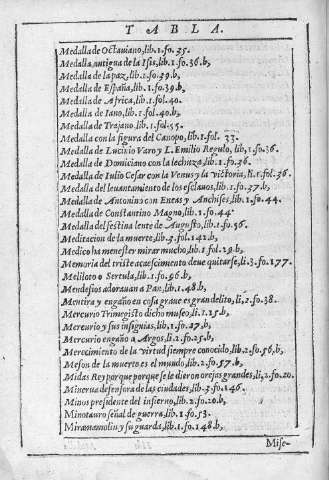 TABLA.
Medalla de Octauiano, lib. 1. fo. 35.
Medalla antigua de la Isis, lib. 1. fo. 36. b,
Medalla de la paz, lib. 2. fo. 39. b,
Medalla de España, lib. 1. fo. 39. b,
Medalla de Africa, lib. 1. fol. 40.
Medalla de Iano, lib. 1. fol. 40. b,
Medalla de Trajano. lib. 1. fol. 55.
Medalla con la figura del Canopo, lib. 1. fol. 33.
Medalla de Lucinio Varo y L. Emilio Regulo, lib, 1. fo. 36.
Medalla de Domiciano con la lechuza, lib. 1. fo. 36.
Medalla de Iulio Cesar con la Venus y la victoria, li. 1. fol. 36.
Medalla del leuantamiento de los esclauos, lib. 1. fo. 37. b,
Medalla de Antonino con Eneas y Anchises, lib. 1. fo. 44.
Medalla de Constantino Magno, lib. 1. fo. 44.
Medalla del festina lente de Augusto, lib. 1. fo. 56.
Meditacion de la muerte, lib. 3. fol. 142. b,
Medico ha menester mirar mucho, lib. 1. fol. 29. b,
Memoria del triste acaescimiento deue quitarse, li. 3. fo. 177.
Meliloto o Sertula, lib. 1. fo. 96. b,
Mendesios adorauan a Pan, lib. 1. 48. b,
Mentira y engaño en cosa graue es gran delito, li, 1. fo. 38.
Mercurio Trimegisto dicho museo, li. 1. 15. b,
Mercurio y sus insignias, lib. 1. fo. 27. b,
Mercurio engaño a Argos, li. 2. fo. 25. b,
Merecimiento de la virtud siempre conocido, lib. 2. fo. 56. b,
Meson de la muerte es el mundo, lib. 2. fo. 57. b,
Midas Rey porque porque se le dieron orejas grandes, li, 2. fo. 20.
Minerua defensora de las ciudades, lib. 3. fo. 146.
Minos presidente del infierno, lib. 2. fo. 20. b,
Minotauro señal de guerra, lib. 1. fo. 53.
Miramamolin y su guarda, lib. 1. fo. 148. b,
Mise-